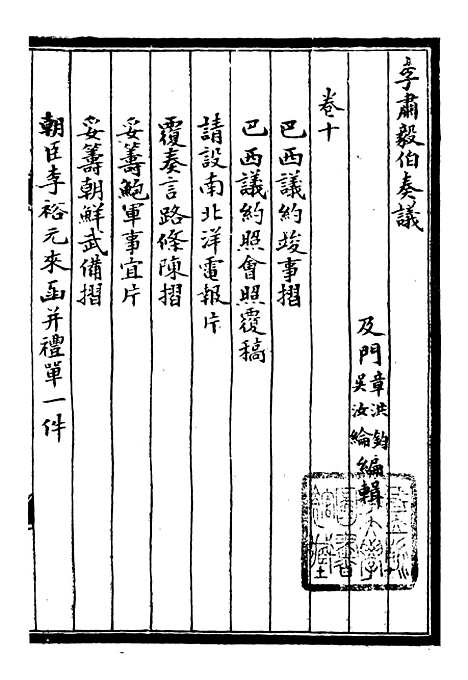 李肅毅伯奏議
及門章洪鈞吳汝綸編輯
卷十
巴西議約竣事摺
巴西議約照會照覆稿
請設南北洋電報片
覆奏言路條陳摺
妥籌鮑軍事宜片
妥籌朝鮮武備摺
朝臣李裕元來函并禮單一件